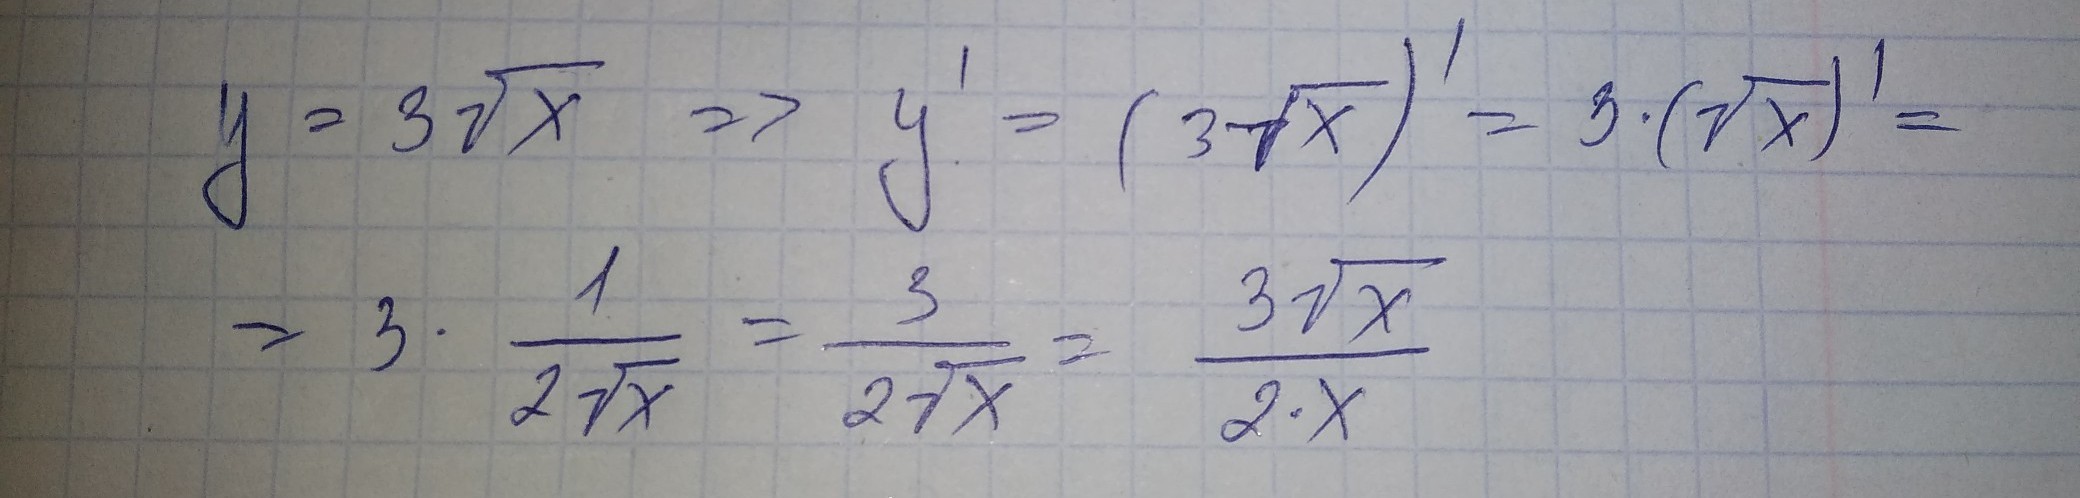 y = 3√x => y' = (3√x)' = 3·(√x)' =
= 3· 1/(2√x) = 3/(2√x) = 3√x/(2·x)